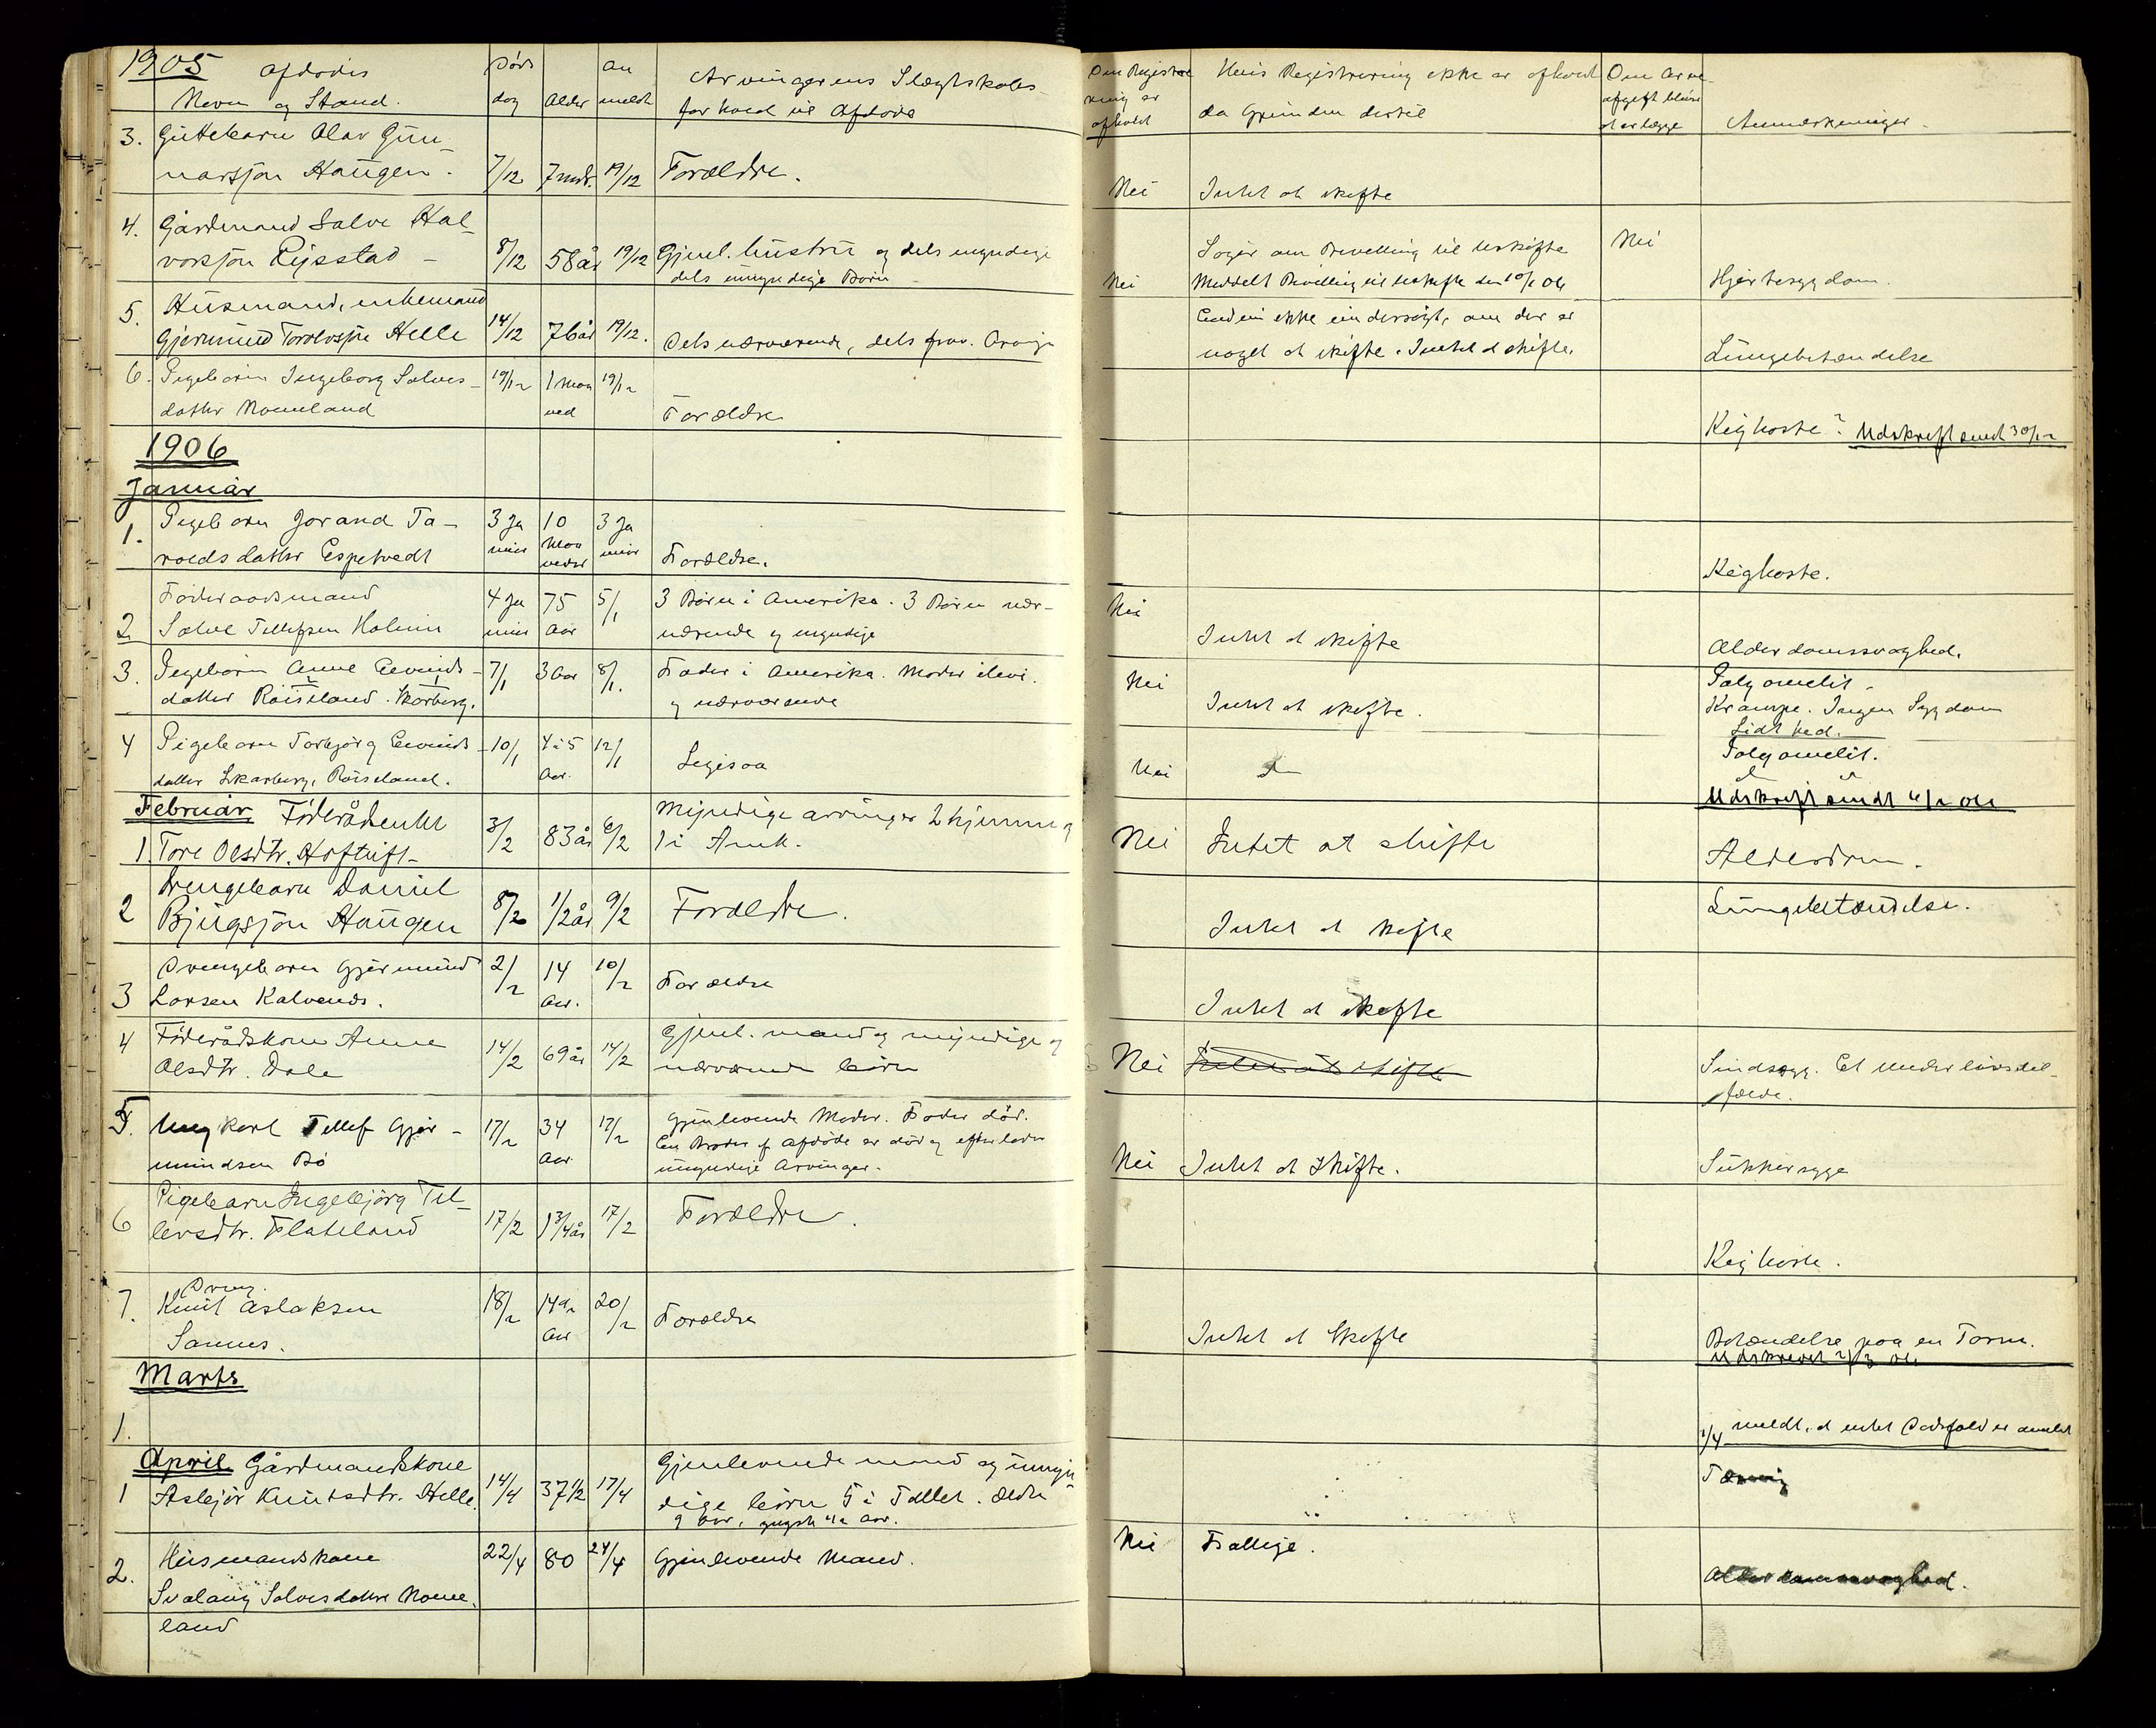 1905 Afdødes
Navn og Stand.
Døds
dag
Alder
an
meldt
Arvingerens Slægtskabs-
forhold til Afdøde
Om Registre
ring er
afholdt
Hvis Registrering ikke er afholdt
da Grunden dertil
Om Arve-
afgift bliver
at erlægge
Anmærkninger.
3. Guttebarn Olav Gun-
narsjon Haugen.
7/12
7 mdr.
19/12
Forældre.
Nei
Intet at skifte
4. Gårdmand Salve Hal-
vorsjon Rysstad -
8/12
58 år
19/12
Gjenl. hustru og dels myndige
dels umyndige Børn
Nei
Søger om Bevilling til Uskifte
Meddelt Bevilling til Uskifte den 10/1 06
Nei
Hjertesygdom.
5. Husmand, enkemand
Gjermund Torolvsjon Helle
14/12
76 år
19/12.
Dels nærværende, dels frav. Arvinger
Endnu ikke undersøgt, om der er
noget at skifte. Intet at skifte.
Lungebetændelse
6. Pigebarn Ingeborg Salves-
datter Nomeland
19/12
1 Maa
ned
19/12
Forældre
Kighoste? Udskrift sendt 30/12
1906
Januar
1. Pigebarn Jorand Ta-
roldsdatter Espetvedt
3 Ja
nuar
10
Maa
neder
3 Ja
nuar
Forældre.
Kighoste.
2 Føderaadsmand
Salve Tellefsen Holmen
4 Ja
nuar
75
Aar
5/1
3 Børn i Amerika. 3 Børn nær-
værende og myndige
Nei
Intet at skifte
Alderdomssvaghed.
3. Pigebarn Anne Eivinds-
datter Røiseland. Skarberg.
7/1
3 Aar
8/1.
Fader i Amerika. Moder ilive.
og nærværende
Nei
Intet at skifte.
Polyomelit -
Krampe. Ingen Sygdom
Lidt hed.
4 Pigebarn Torbjørg Eivinds-
datter Skarberg, Røiseland.
10/1
4 à 5
Aar.
12/1
Ligesaa
Nei
Polyomelit.
Udskrift sendt
Februar Føderådsenke
1. Tore Olsdtr. Hoftuft-
3/2
83 år
6/2
Myndige arvinger 2 hjemme og
1 i Amk.
Nei
Intet at skifte
Alderdom.
2 Drengebarn Daniel
Bjugsjon Haugen
8/2
1/2 år
9/2
Forældre.
Intet at skifte
Lungebetændelse.
3 Drengebarn Gjermund
Larsen Kalvenes.
2/2
14
Aar.
10/2
Forældre
Intet at skifte
4 Føderådskone Anne
Olsdtr. Dale
14/2
69 år
14/2
Gjenl. mand og myndige og
nærværende børn
Nei
Intet at skifte
Sindssyg. Et underlivstil-
fælde.
5. Ungkarl Tellef Gjer-
mundsen Bø
17/2
34
Aar
17/2
Gjenlevende Moder. Fader død.
En Broder af Afdøde er død og efterlader
umyndige Arvinger.
Nei
Intet at skifte.
Sukkersyge
6 Pigebarn Ingebjørg Tel-
levsdtr. Flateland
17/2
1 3/4 år
17/2
Forældre.
Kighoste.
7. Dreng
Knut Aslaksen
Sannes.
18/2
14
Aar
20/2
Forældre
Intet at Skifte
Betændelse paa en Tarm.
Udskrevet 2/3 06
Marts
1.
1/4 meldt, at intet Dødsfald er anmeldt
April Gårdmandskone
1 Aslejør Knutsdtr. Helle
14/4
37 1/2
17/4
Gjenlevende mand og umyn
dige børn 5 i Tallet. ældre
9 Aar, yngste 1/2 Aar.
Tæring
2. Husmandskone
Svalaug Salvesdatter Nome-
land
22/4
80
24/4
Gjenlevende Mand.
Nei
Fattige.
Alderdomssvaghed.